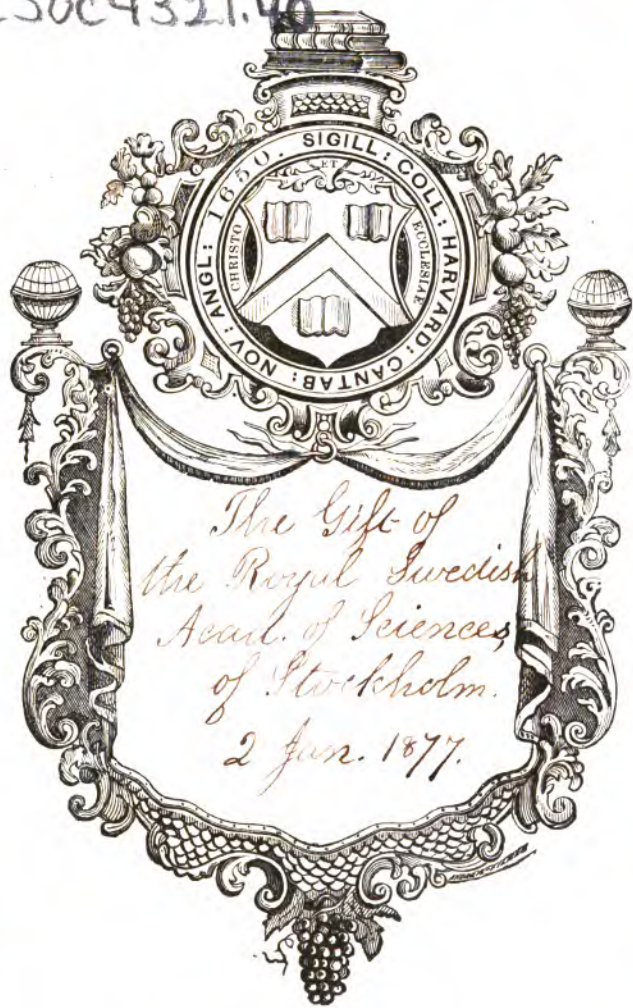 SIGILL: COLL: HARVARD: CANTAB: NOV: ANGL: 1650.
CHRISTO
ET
ECCLESIAE
The Gift of
the Royal Swedish
Acad. of Sciences,
of Stockholm.
2 Jan. 1877.